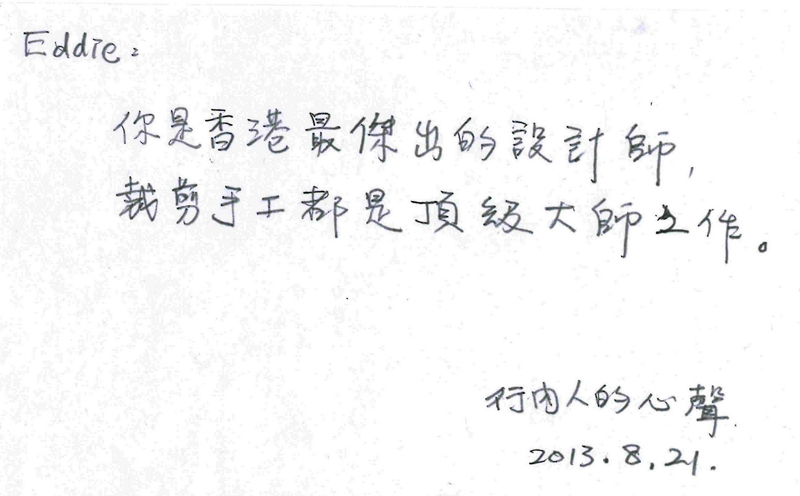 Eddie:
你是香港最傑出的設計師,
裁剪手工都是頂級大師之作。
行內人的心聲
2013.8.21.